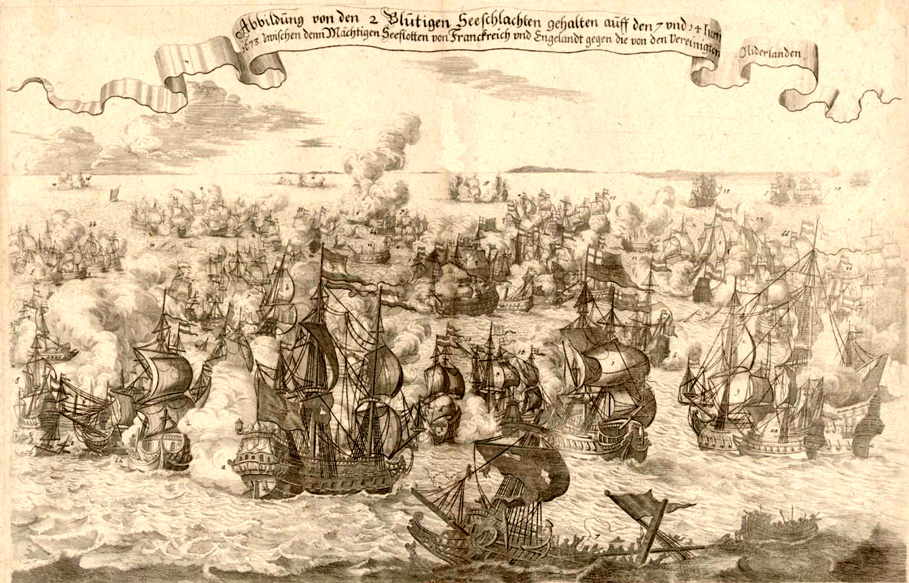 Abbildung von den 2 Blutigen Seeschlachten gehalten auff den 7 und 14 Iunii
1673. zwischen denn Mächtigen Seeflotten von Franckreich vnd Engelandt gegen die von den Vereinigten
Niderlanden